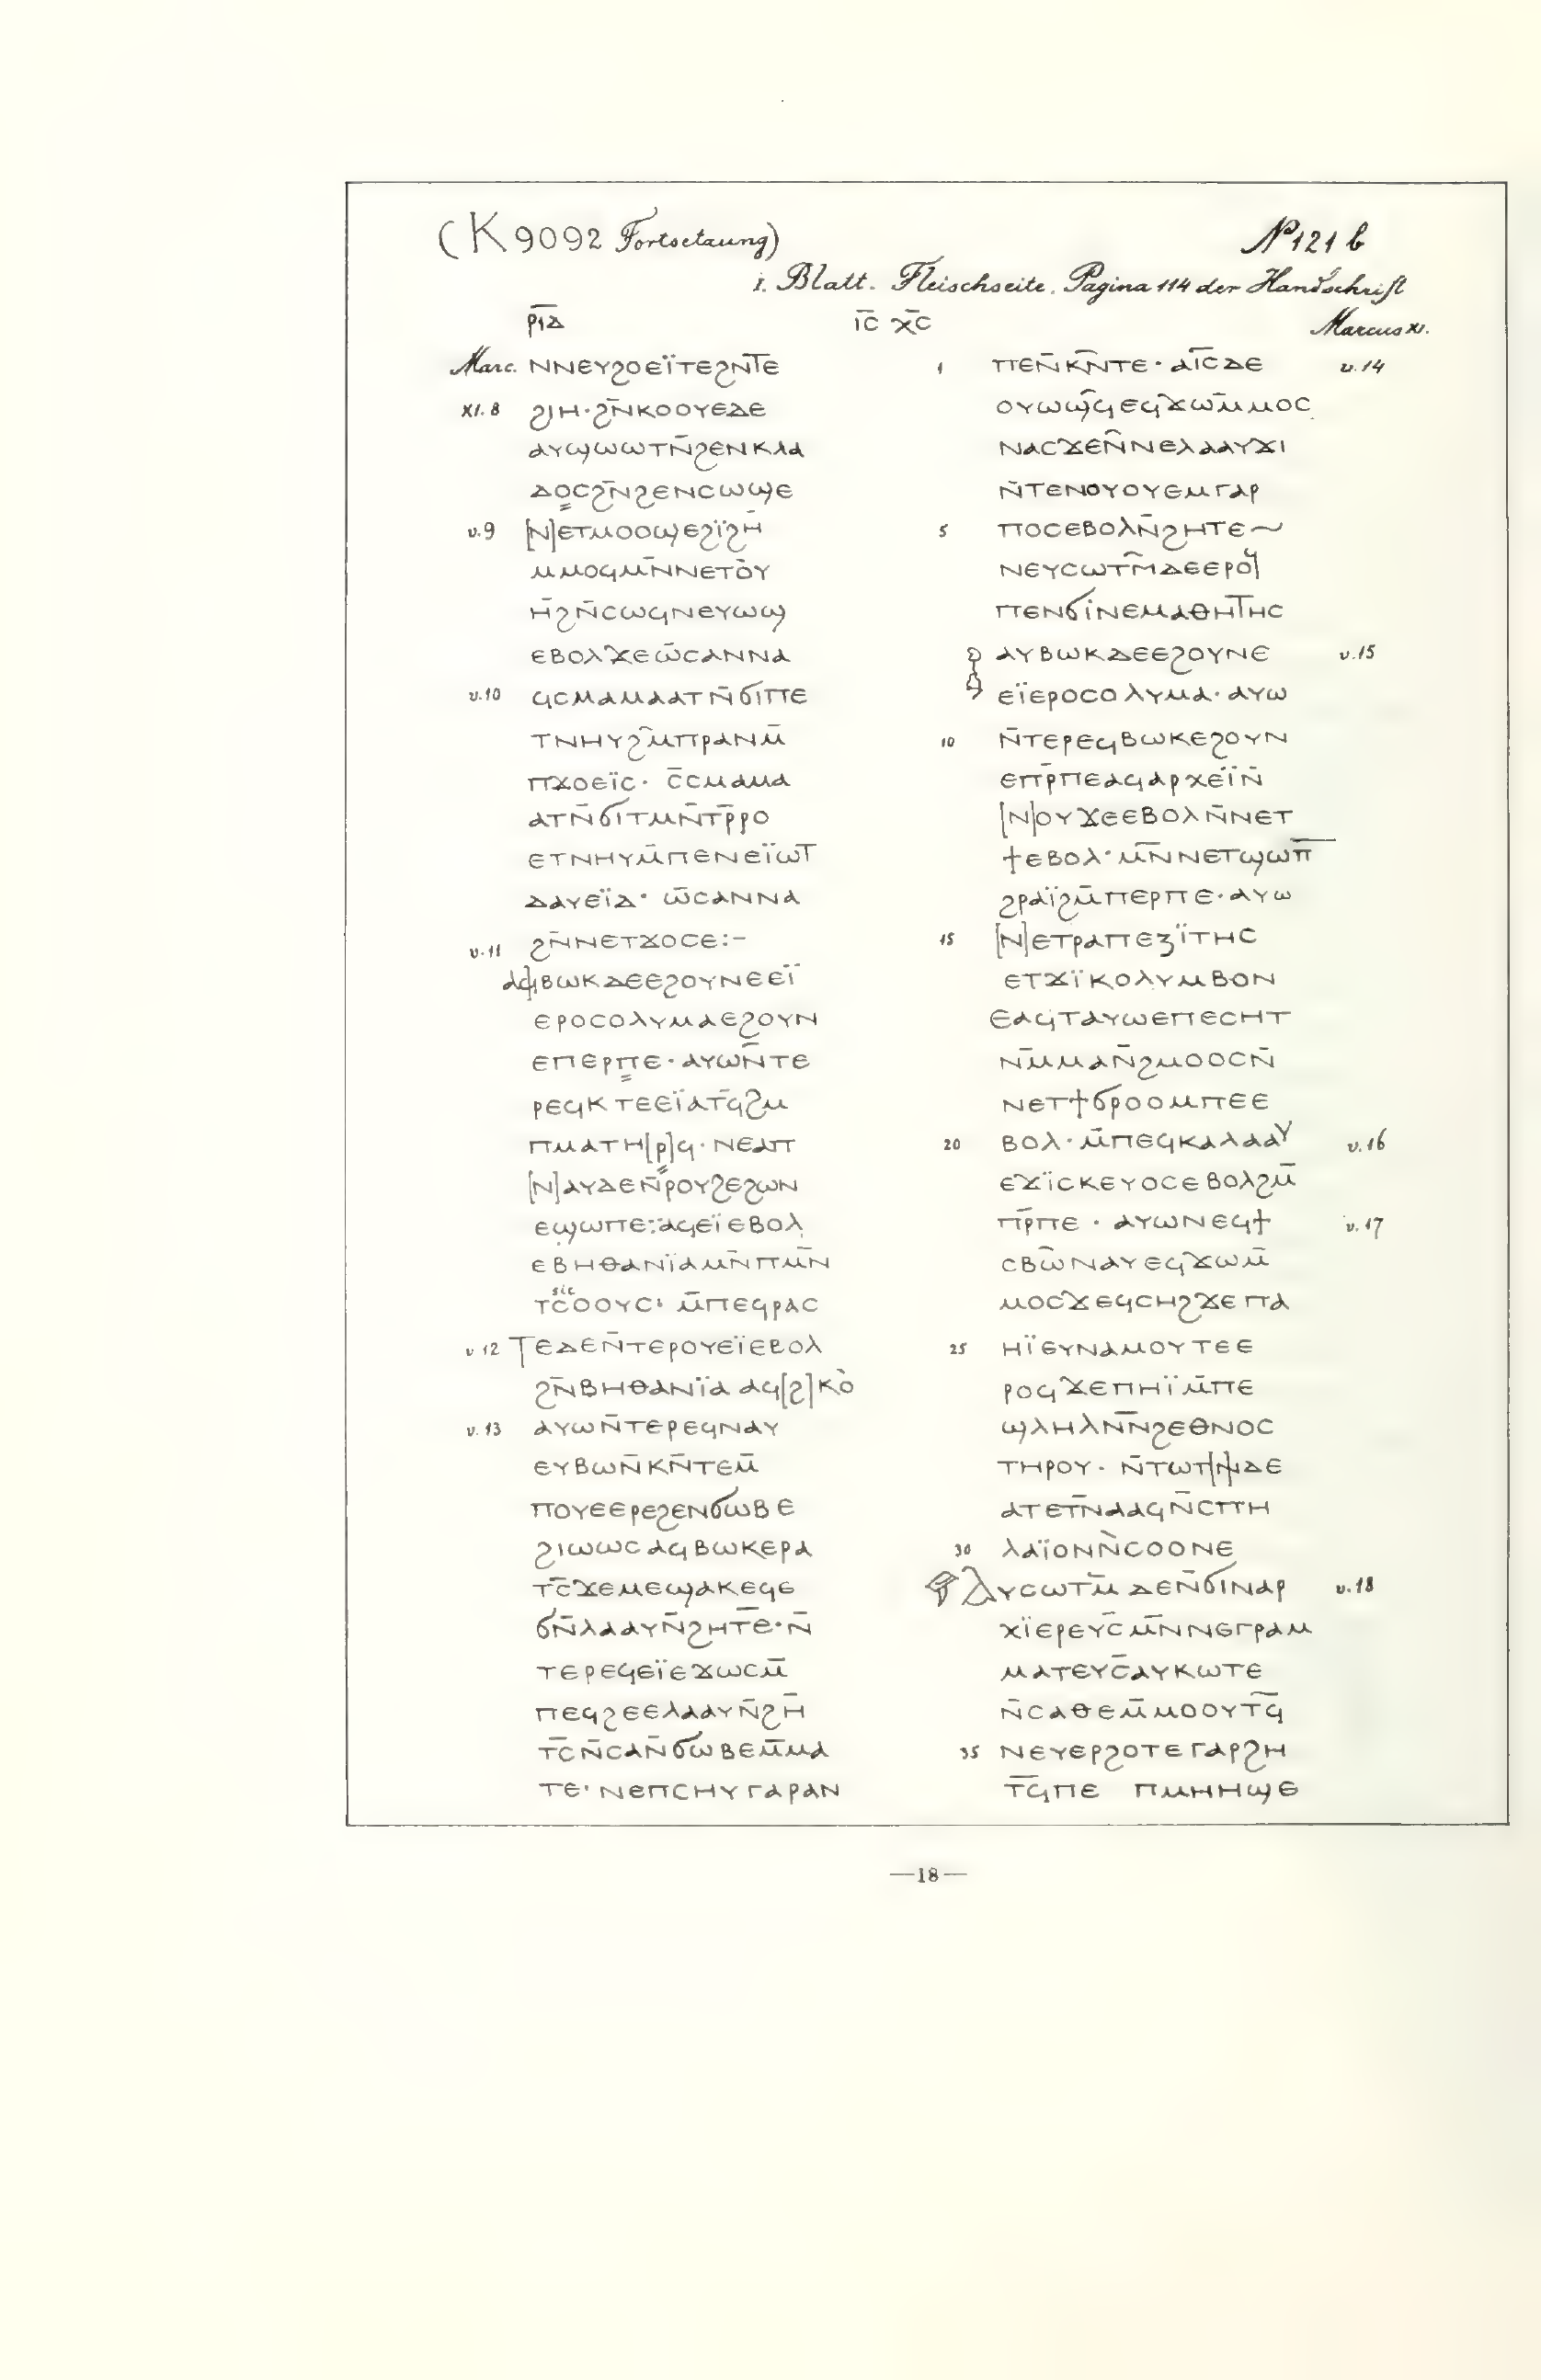 (K 9092 Fortsetzung) No 121 b
I. Blatt. Fleischseite. Pagina 114 der Handschrift
ⲣ̅ⲓ̅ⲇ̅ ⲓ̅ⲥ̅ ⲭ̅ⲥ̅ Marcus XI.
Marc. ⲛⲛⲉⲩϩⲟⲉⲓ̈ⲧⲉϩⲛ̅ⲧⲉ
XI. 8 ϩⲓⲏ·ϩⲛ̅ⲕⲟⲟⲩⲉⲇⲉ
ⲁⲩϣⲱⲱⲧⲛ̅ϩⲉⲛⲕⲗⲁ
ⲇⲟⲥϩⲛ̅ϩⲉⲛⲥⲱϣⲉ
v. 9 [ⲛ]ⲉⲧⲙⲟⲟϣⲉϩⲓ̈ϩⲏ̅
ⲙⲙⲟϥⲙⲛ̅ⲛⲉⲧⲟ̀ⲩ
ⲏ̅ϩⲛ̅ⲥⲱϥⲛⲉⲩⲱϣ
ⲉⲃⲟⲗϫⲉⲱ̅ⲥⲁⲛⲛⲁ
v. 10 ϥⲥⲙⲁⲙⲁⲁⲧⲛ̅ϭⲓⲡⲉ
ⲧⲛⲏⲩϩⲙ̅ⲡⲣⲁⲛⲙ̅
ⲡϫⲟⲉⲓ̈ⲥ· ⲥ̅ⲥⲙⲁⲙⲁ
ⲁⲧⲛ̅ϭⲓⲧⲙⲛ̅ⲧⲣ̅ⲣⲟ
ⲉⲧⲛⲏⲩⲙ̅ⲡⲉⲛⲉⲓ̈ⲱⲧ
ⲇⲁⲩⲉⲓ̈ⲇ· ⲱ̅ⲥⲁⲛⲛⲁ
v. 11 ϩⲛ̅ⲛⲉⲧϫⲟⲥⲉ:-
ⲁϥⲃⲱⲕⲇⲉⲉϩⲟⲩⲛⲉⲉⲓ̈
ⲉⲣⲟⲥⲟⲗⲩⲙⲁⲉϩⲟⲩⲛ
ⲉⲡⲉⲣⲡⲉ·ⲁⲩⲱⲛ̅ⲧⲉ
ⲣⲉϥⲕⲧⲉⲉⲓ̈ⲁⲧϥ̅ϩⲙ
ⲡⲙⲁⲧⲏ[ⲣ]ϥ·ⲛⲉⲁⲡ
[ⲛ]ⲁⲩⲇⲉⲛ̅ⲣⲟⲩϩⲉϩⲱⲛ
ⲉϣⲱⲡⲉ:ⲁϥⲉⲓ̈ⲉⲃⲟⲗ
ⲉⲃⲏⲑⲁⲛⲓ̈ⲁⲙⲛ̅ⲡⲙⲛ̅
sic
ⲧⲥ̅ⲟⲟⲩⲥ· ⲙ̅ⲡⲉϥⲣⲁⲥ
v 12 ⲧⲉⲇⲉⲛ̅ⲧⲉⲣⲟⲩⲉⲓ̈ⲉⲃⲟⲗ
ϩⲛ̅ⲃⲏⲑⲁⲛⲓ̈ⲁ ⲁϥ[ϩ]ⲕⲟ̀
v. 13 ⲁⲩⲱⲛ̅ⲧⲉⲣⲉϥⲛⲁⲩ
ⲉⲩⲃⲱⲛ̅ⲕⲛ̅ⲧⲉⲙ̅
ⲡⲟⲩⲉⲉⲣⲉϩⲉⲛϭⲱⲃⲉ
ϩⲓⲱⲱⲥ ⲁϥⲃⲱⲕⲉⲣⲁ
ⲧⲥ̅ϫⲉⲙⲉϣⲁⲕⲉϥⲉ
ϭⲛ̅ⲗⲁⲁⲩⲛ̅ϩⲏⲧⲉ̅·ⲛ̅
ⲧⲉⲣⲉϥⲉⲓ̈ⲉϫⲱⲥⲙ̅
ⲡⲉϥϩⲉⲉⲗⲁⲁⲩⲛ̅ϩⲏ̅
ⲧⲥ̅ⲛ̅ⲥⲁⲛ̅ϭⲱⲃⲉⲙ̅ⲙⲁ
ⲧⲉ· ⲛⲉⲡⲥⲏⲩⲅⲁⲣⲁⲛ
1 ⲡⲉⲛ̅ⲕⲛ̅ⲧⲉ·ⲁⲓ̅ⲥ̅ⲇⲉ v. 14
ⲟⲩⲱϣϥ̅ⲉϥϫⲱⲙ̅ⲙⲟⲥ
ⲛⲁⲥϫⲉⲛ̅ⲛⲉⲗⲁⲁⲩϫⲓ
ⲛ̅ⲧⲉⲛⲟⲩⲟⲩⲉⲙⲅⲁⲣ
5 ⲡⲟⲥⲉⲃⲟⲗⲛ̅ϩⲏⲧⲉ~
ⲛⲉⲩⲥⲱⲧⲙ̅ⲇⲉⲉⲣⲟϥ
ⲡⲉⲛϭⲓⲛⲉⲙⲁⲑⲏⲧⲏⲥ
ⲁⲩⲃⲱⲕⲇⲉⲉϩⲟⲩⲛⲉ v. 15
ⲉⲓ̈ⲉⲣⲟⲥⲟⲗⲩⲙⲁ·ⲁⲩⲱ
10 ⲛ̅ⲧⲉⲣⲉϥⲃⲱⲕⲉϩⲟⲩⲛ
ⲉⲡⲣ̅ⲡⲉⲁϥⲁⲣⲭⲉⲓ̈ⲛ̅
[ⲛ]ⲟⲩϫⲉⲉⲃⲟⲗⲛ̅ⲛⲉⲧ
ϯⲉⲃⲟⲗ·ⲙⲛ̅ⲛⲉⲧϣⲱⲡ̅
ϩⲣⲁⲓ̈ϩⲙ̅ⲡⲉⲣⲡⲉ·ⲁⲩⲱ
15 [ⲛ]ⲉⲧⲣⲁⲡⲉⲍⲓ̈ⲧⲏⲥ
ⲉⲧϫⲓ̈ⲕⲟⲗⲩⲙⲃⲟⲛ
ⲉⲁϥⲧⲁⲩⲱⲉⲡⲉⲥⲏⲧ
ⲛ̅ⲙ̅ⲙⲁⲛ̅ϩⲙⲟⲟⲥⲛ̅
ⲛⲉⲧϯϭⲣⲟⲟⲙⲡⲉⲉ
20 ⲃⲟⲗ·ⲙ̅ⲡⲉϥⲕⲁⲗⲁⲁⲩ v. 16
ⲉϫⲓ̈ⲥⲕⲉⲩⲟⲥⲉⲃⲟⲗϩⲙ̅
ⲡⲣ̅ⲡⲉ · ⲁⲩⲱⲛⲉϥϯ v. 17
ⲥⲃⲱ̅ⲛⲁⲩⲉϥϫⲱⲙ̅
ⲙⲟⲥϫⲉϥⲥⲏϩϫⲉⲡⲁ
25 ⲏⲓ̈ⲉⲩⲛⲁⲙⲟⲩⲧⲉⲉ
ⲣⲟϥϫⲉⲡⲏⲓ̈ⲙ̅ⲡⲉ
ϣⲗⲏⲗⲛ̅ⲛ̅ϩⲉⲑⲛⲟⲥ
ⲧⲏⲣⲟⲩ· ⲛ̅ⲧⲱⲧⲛ̅ⲇⲉ
ⲁⲧⲉⲧⲛ̅ⲁⲁϥⲛ̅ⲥⲡⲏ
30 ⲗⲁⲓ̈ⲟⲛⲛ̀ⲥⲟⲟⲛⲉ
ⲁⲩⲥⲱⲧⲙ̅ⲇⲉⲛ̅ϭⲓⲛⲁⲣ v. 18
ⲭⲓ̈ⲉⲣⲉⲩⲥ̅ⲙⲛ̅ⲛⲉⲅⲣⲁⲙ
ⲙⲁⲧⲉⲩⲥ̅ⲁⲩⲕⲱⲧⲉ
ⲛ̅ⲥⲁⲑⲉⲙ̅ⲙⲟⲟⲩⲧϥ̅
35 ⲛⲉⲩⲉⲣϩⲟⲧⲉⲅⲁⲣϩⲏ
ⲧϥ̅ⲡⲉ ⲡⲙⲏⲏϣⲉ
—18—